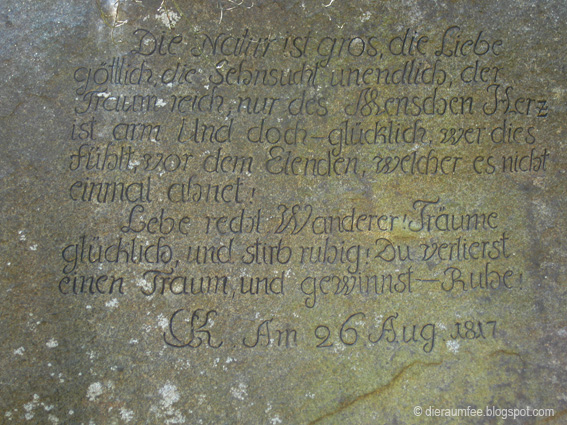 Die Natur ist gros, die Liebe
göttlich, die Sehnsucht unendlich, der
Traum reich, nur des Menschen Herz
ist arm! Und doch – glücklich, wer dies
fühlt, vor dem Elenden, welcher es nicht
einmal ahnet!
Lebe recht Wanderer! Träume
glücklich, und stirb ruhig! Du verlierst
einen Traum, und gewinnst – Ruhe!
CK Am 26 Aug 1817
© dieraumfee.blogspot.com